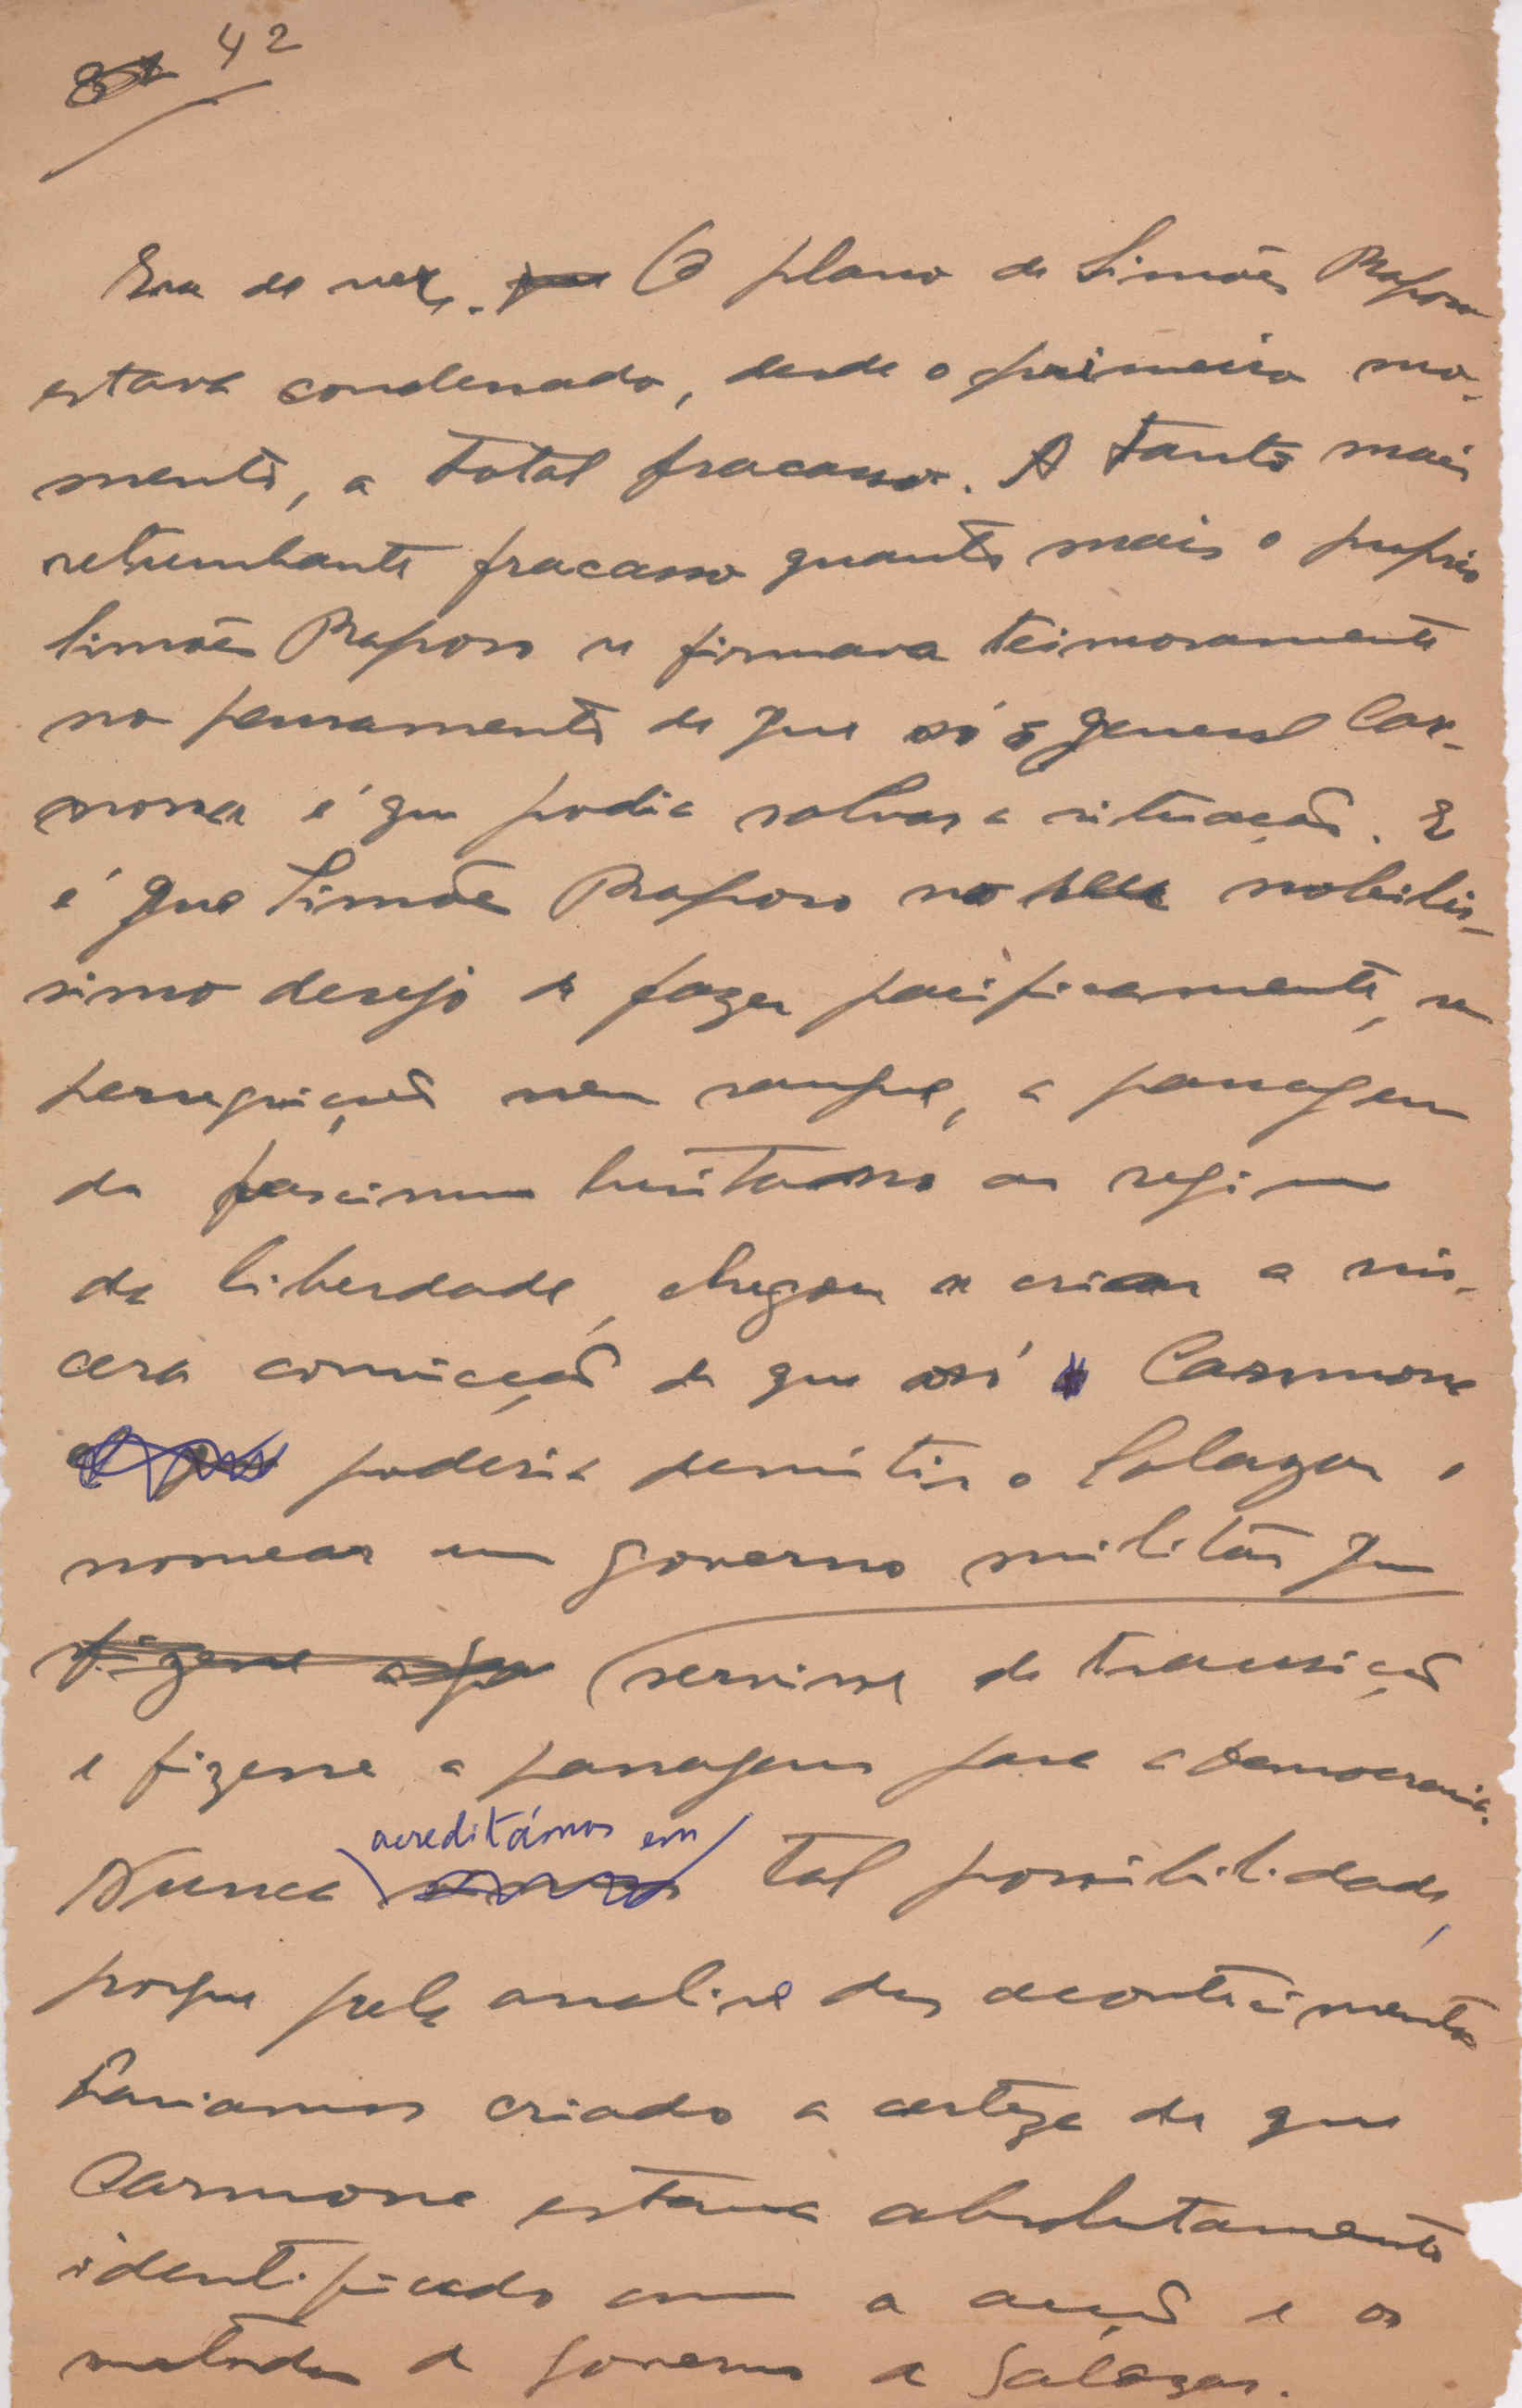 42
Era de ver. O plano de Simões Raposo
estava condenado, desde o primeiro mo-
mento, a total fracasso. A tanto mais
retumbante fracasso quanto mais o proprio
Simões Raposo se firmava teimosamente
no pensamento de que só o general Car-
mona é que podia salvar a situação. E
é que Simões Raposo no nobilis-
simo desejo de fazer pacificamente, sem
perseguições nem sangue, a passagem
do fascismo lusitano ao regime
da liberdade, chegou a criar a sin-
cera convicção de que só Carmona
poderia demitir o Salazar e
nomear um governo militar que
servisse de transição
e fizesse a passagem para a democracia.
Nunca acreditámos em tal possibilidade,
porque pela analise dos acontecimentos
haviamos criado a certeza de que
Carmona estava absolutamente
identificado com a acção e os
metodos de governo de Salazar.